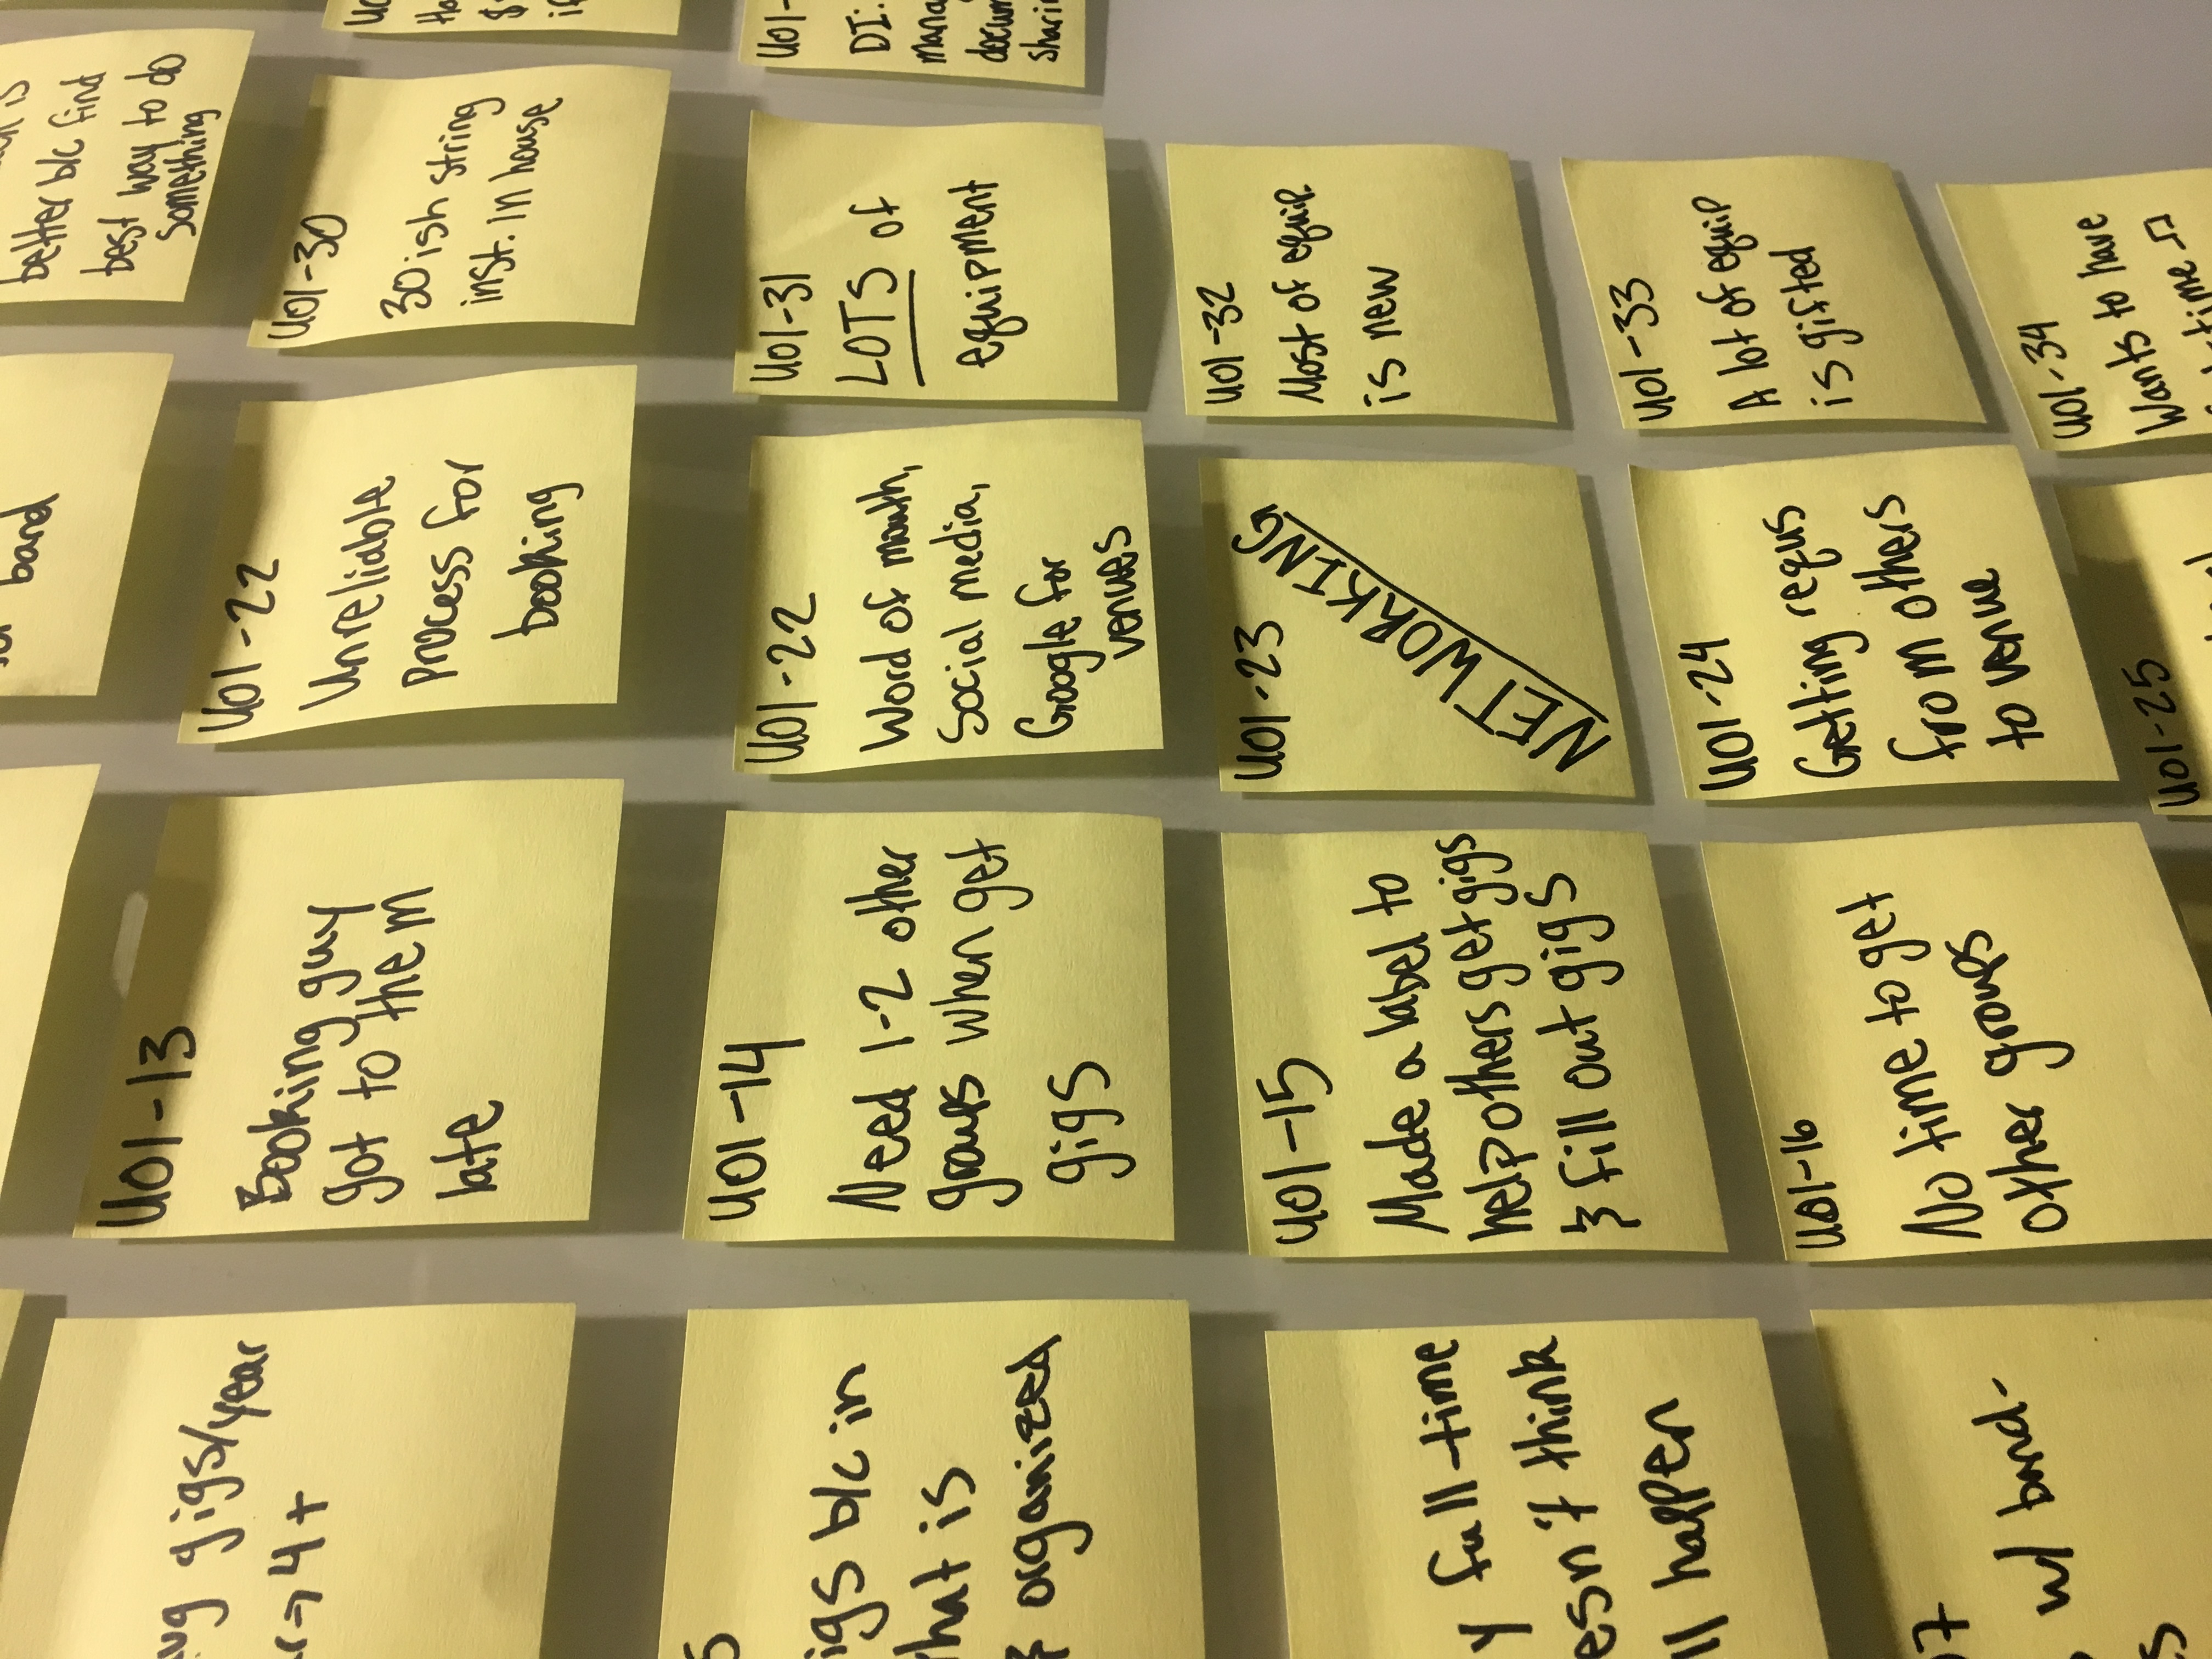 gigs/year
→ 4+
5
b/c in
that is
& organized
y full-time
think
happen
7
w/ band-
U01-13
Booking guy
got to them
late
U01-14
Need 1-2 other
groups when get
gigs
U01-15
Made a label to
help others get gigs
& fill out gigs
U01-16
No time to get
other groups
band
U01-22
Unreliable
Process for
booking
U01-22
Word of mouth,
Social media,
Google for
venues
U01-23
NETWORKING
U01-24
Getting requs
from others
to venue
U01-25
is
better b/c find
best way to do
Something
U01-30
30ish string
inst. in house
U01-31
LOTS of
equipment
U01-32
Most of equip.
is new
U01-33
A lot of equip
is gifted
U01-34
Wants to have
time ♫
U01-
DI: